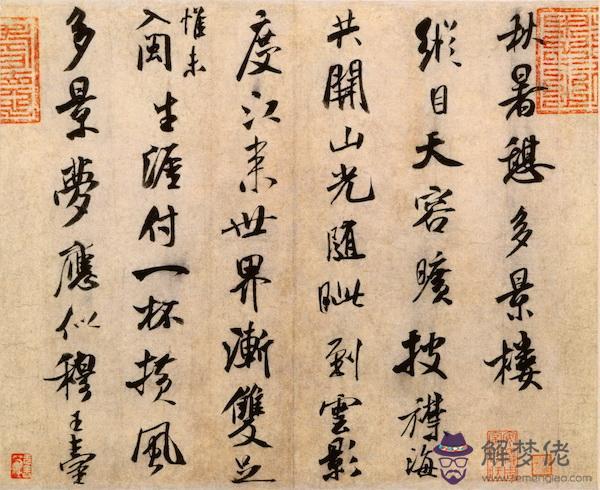 秋暑憩多景樓
縱目天容曠披襟海
共開山光随眦到雲影
度江來世界漸雙足
惟未
入閩生涯付一杯横風
多景夢應似穆王臺
解梦佬